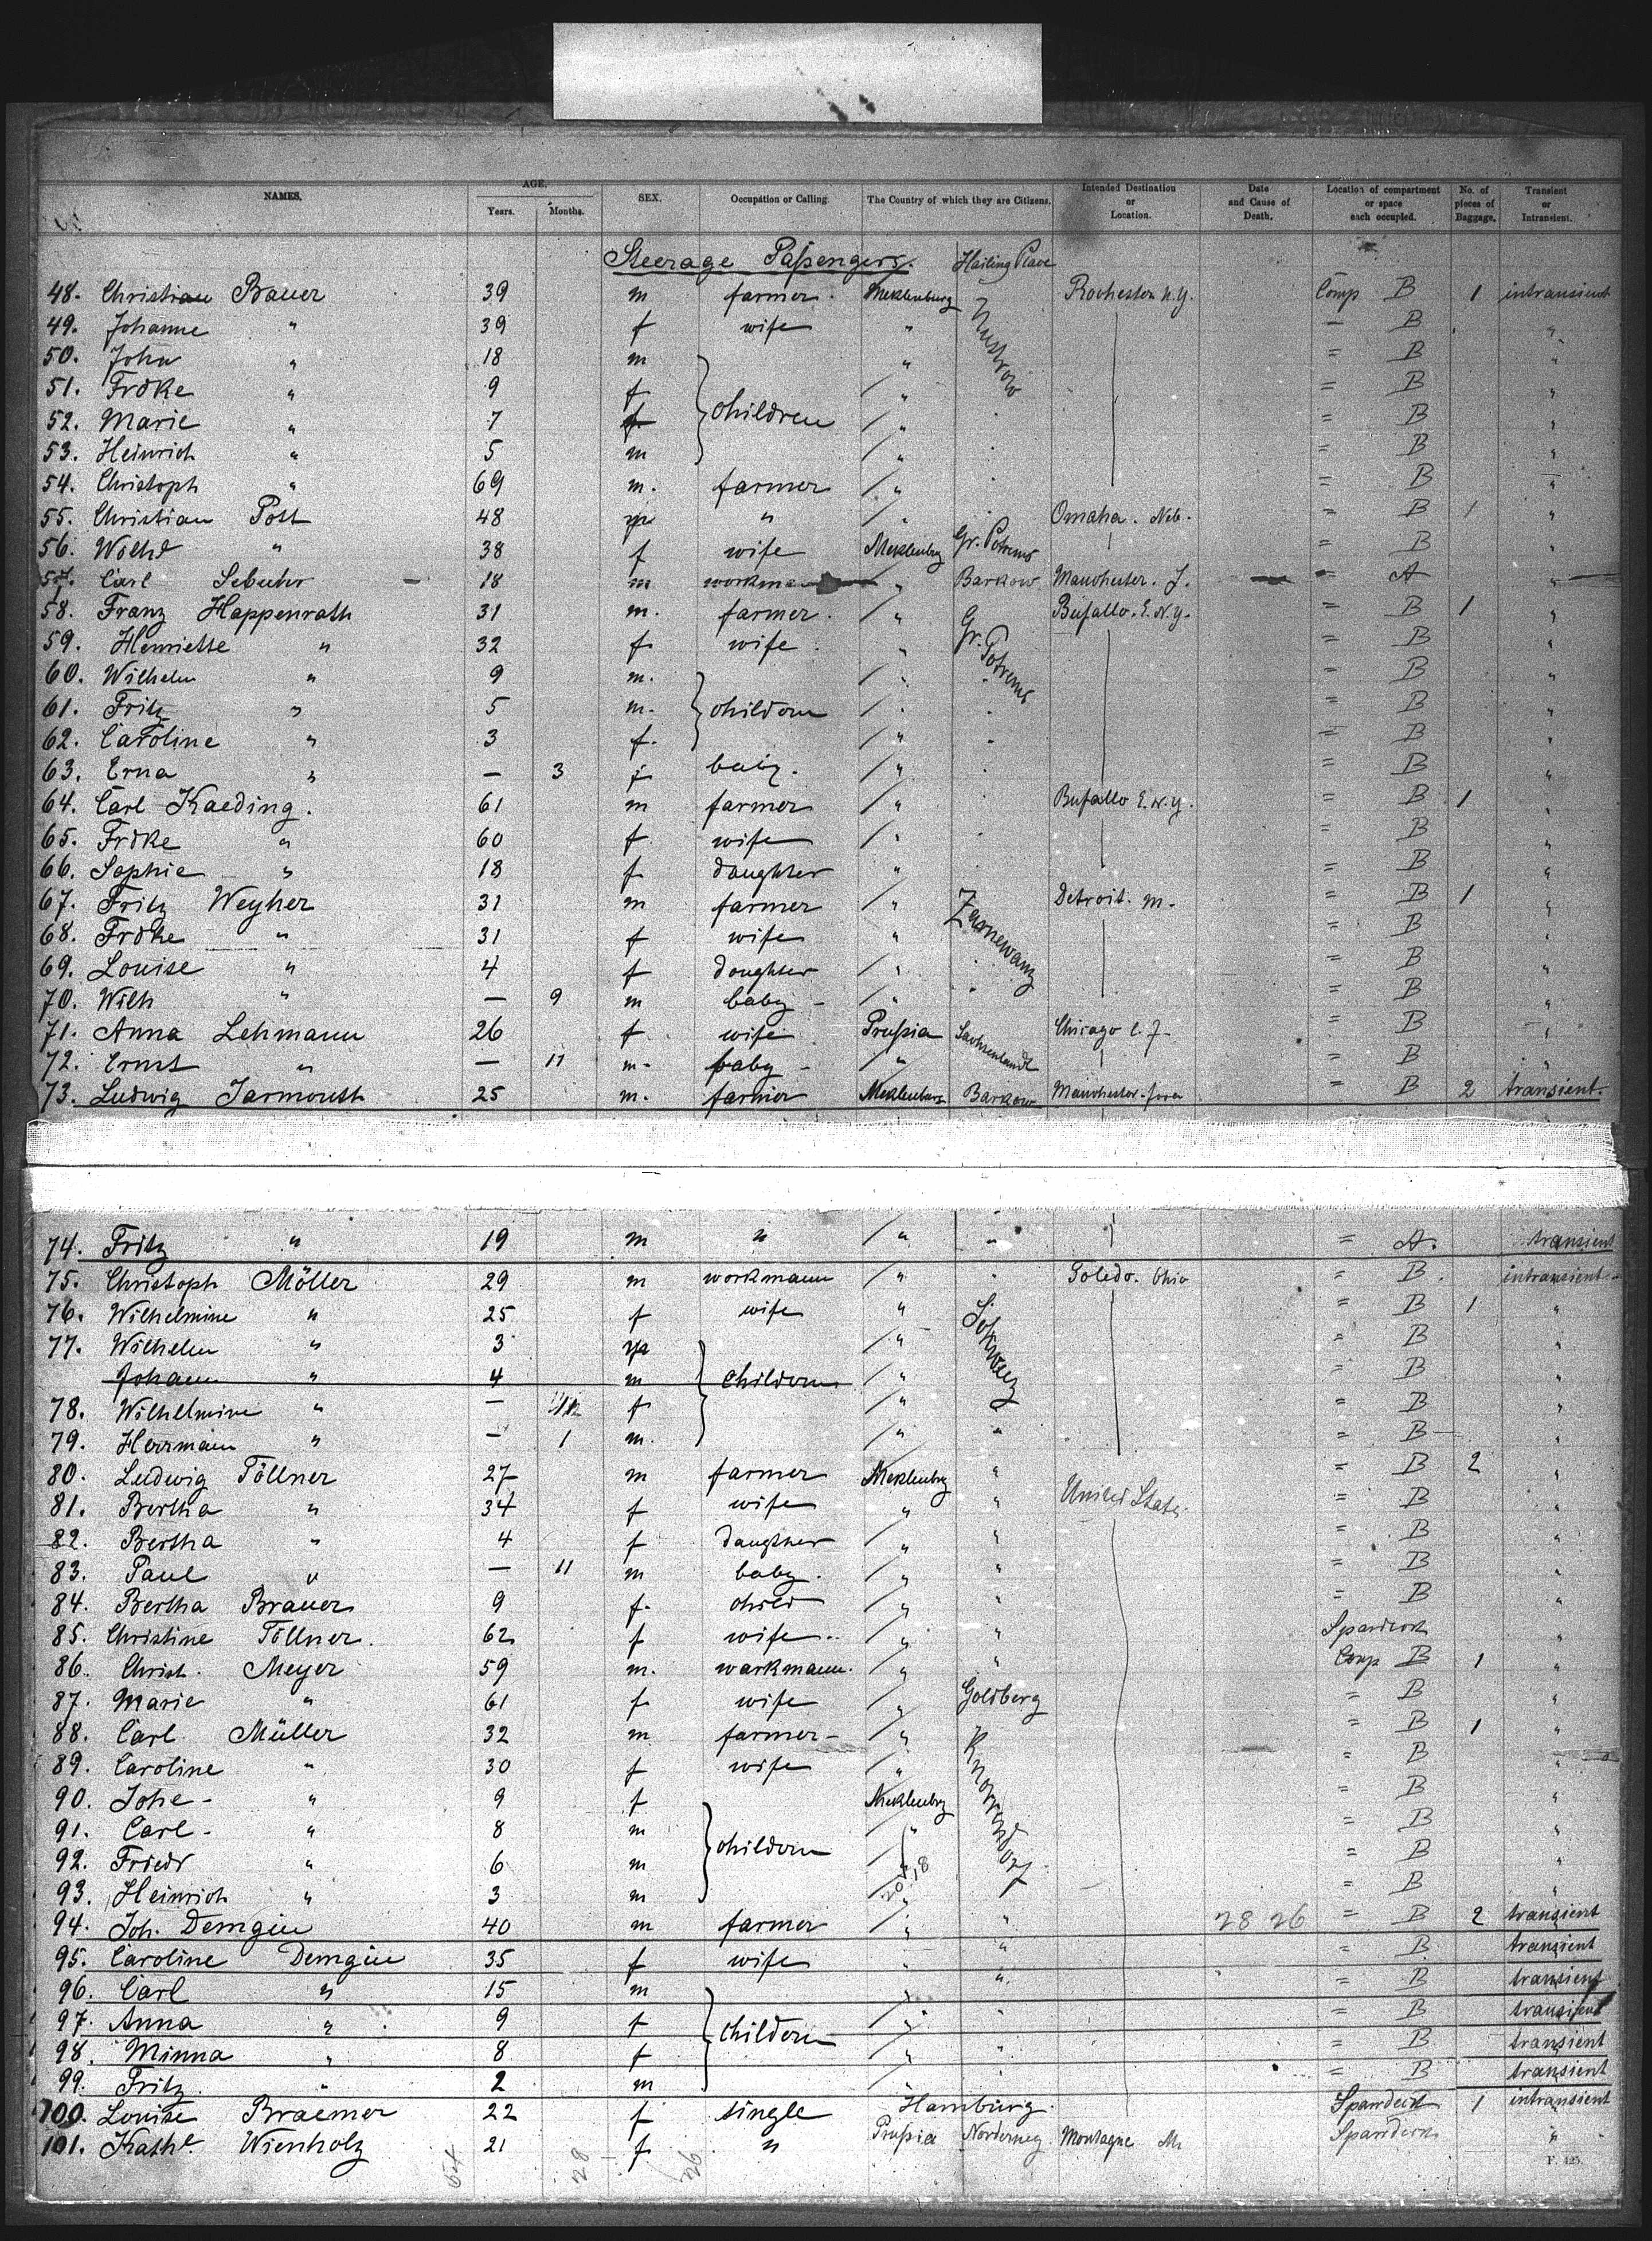 NAMES. AGE. Years. Months. SEX. Occupation or Calling. The Country of which they are Citizens. Intended Destination or Location. Date and Cause of Death. Location of compartment or space each occupied. No. of pieces of Baggage. Transient or Intransient.
Steerage Passengers. Hailing Place
48. Christian Bauer 39 m farmer. Meklenburg Rochester N.Y. Comp B 1 intransient
49. Johanne " 39 f wife " — B "
50. John " 18 m " = B "
51. Frdke " 9 f " = B "
52. Marie " 7 f children " = B "
53. Heinrich " 5 m " = B "
54. Christoph " 69 m. farmer " = B "
55. Christian Pott 48 m " " Omaha. Neb. = B 1 "
56. Wilhe " 38 f wife Meklenbg Gr. Potrems = B "
57. Carl 18 m workman " Barkow Manchester. J. = A "
58. Franz Happenrath 31 m. farmer. " Gr. Potrems Bufallo. E. N.Y. = B 1 "
59. Henriette " 32 f. wife. " = B "
60. Wilhelm " 9 m. " = B "
61. Fritz " 5 m. childern " = B "
62. Caroline " 3 f. " = B "
63. Erna " — 3 f baby. " = B "
64. Carl Kaeding. 61 m farmer " Bufallo E. N.Y. = B 1 "
65. Frdke " 60 f wife " = B "
66. Sophie " 18 f daughter " = B "
67. Fritz Weyher 31 m farmer " Zarnewanz Detroit. M. = B 1 "
68. Frdke " 31 f wife " = B "
69. Louise " 4 f doughter " = B "
70. Wilh " — 9 m baby - " = B "
71. Anna Lehmann 26 f wife Prussia Chicago = B "
72. Ernst " — 11 m. baby - " = B "
73. Ludwig Jarmouth 25 m. farmer Meklenburg Barkow Manchester = B 2 transient.
74. Fritz " 19 m " " " = A. transient
75. Christoph Möller 29 m workmann " Toledo. Ohio = B. intransient
76. Wilhelmine " 25 f wife " = B 1 "
77. Wilhelm " 3 m " = B "
Johann " 4 m childern " = B
78. Wilhelmine " — 11 f " = B "
79. Herrmann " — 1 m. " = B "
80. Ludwig Töllner 27 m farmer Meklenbg " = B 2 "
81. Bertha " 34 f wife " " United States = B "
82. Bertha " 4 f daugther " " = B "
83. Paul " — 11 m baby. " " = B "
84. Bertha Brauer 9 f. child " " = B "
85. Christine Töllner. 62 f wife " " "
86. Christ. Meyer 59 m. warkmann. " " Comp B 1 "
87. Marie " 61 f wife " Goldberg = B "
88. Carl Müller 32 m farmer - " Knorrendorf = B 1 "
89. Caroline " 30 f wife " = B "
90. Johe - " 9 f Meklenbg = B "
91. Carl - " 8 m " = B "
92. Friedr " 6 m childern " = B "
93. Heinrich " 3 m " = B "
94. Joh. Demgin 40 m farmer " " 28 26 = B 2 transient
95. Caroline Demgin 35 f wife " " = B transient
96. Carl " 15 m " " = B transient
97. Anna " 9 f childern " = B transient
98. Minna " 8 f " " = B transient
99. Fritz " 2 m " = B transient
100. Louise Braemer 22 f single Hamburg. 1 intransient
101. Kathe. Wienholz 21 f " Prussia Norderney Montague M. "
54 28 26
F. 425.